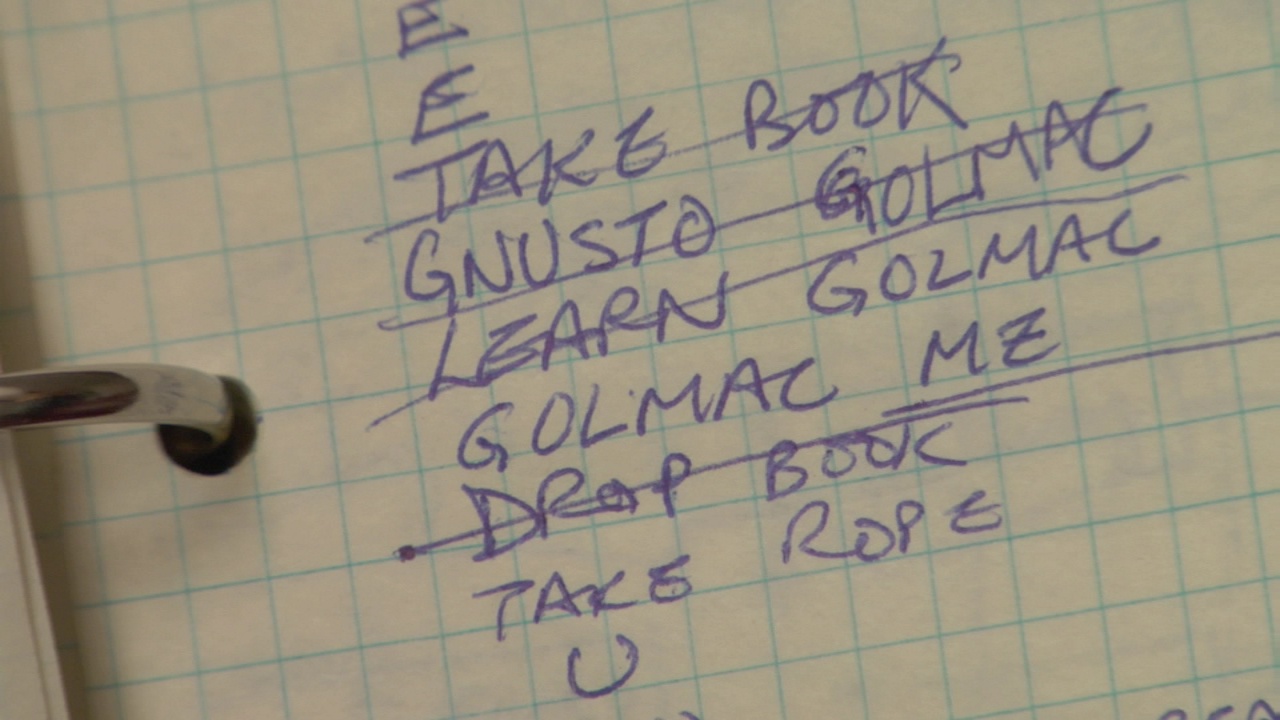 E
E
TAKE BOOK
GNUSTO GOLMAC
LEARN GOLMAC
GOLMAC ME
DROP BOOK
TAKE ROPE
U